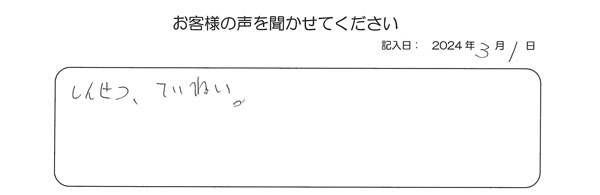 お客様の声を聞かせてください
記入日： 2024年 3月 1日
しんせつ、ていねい。